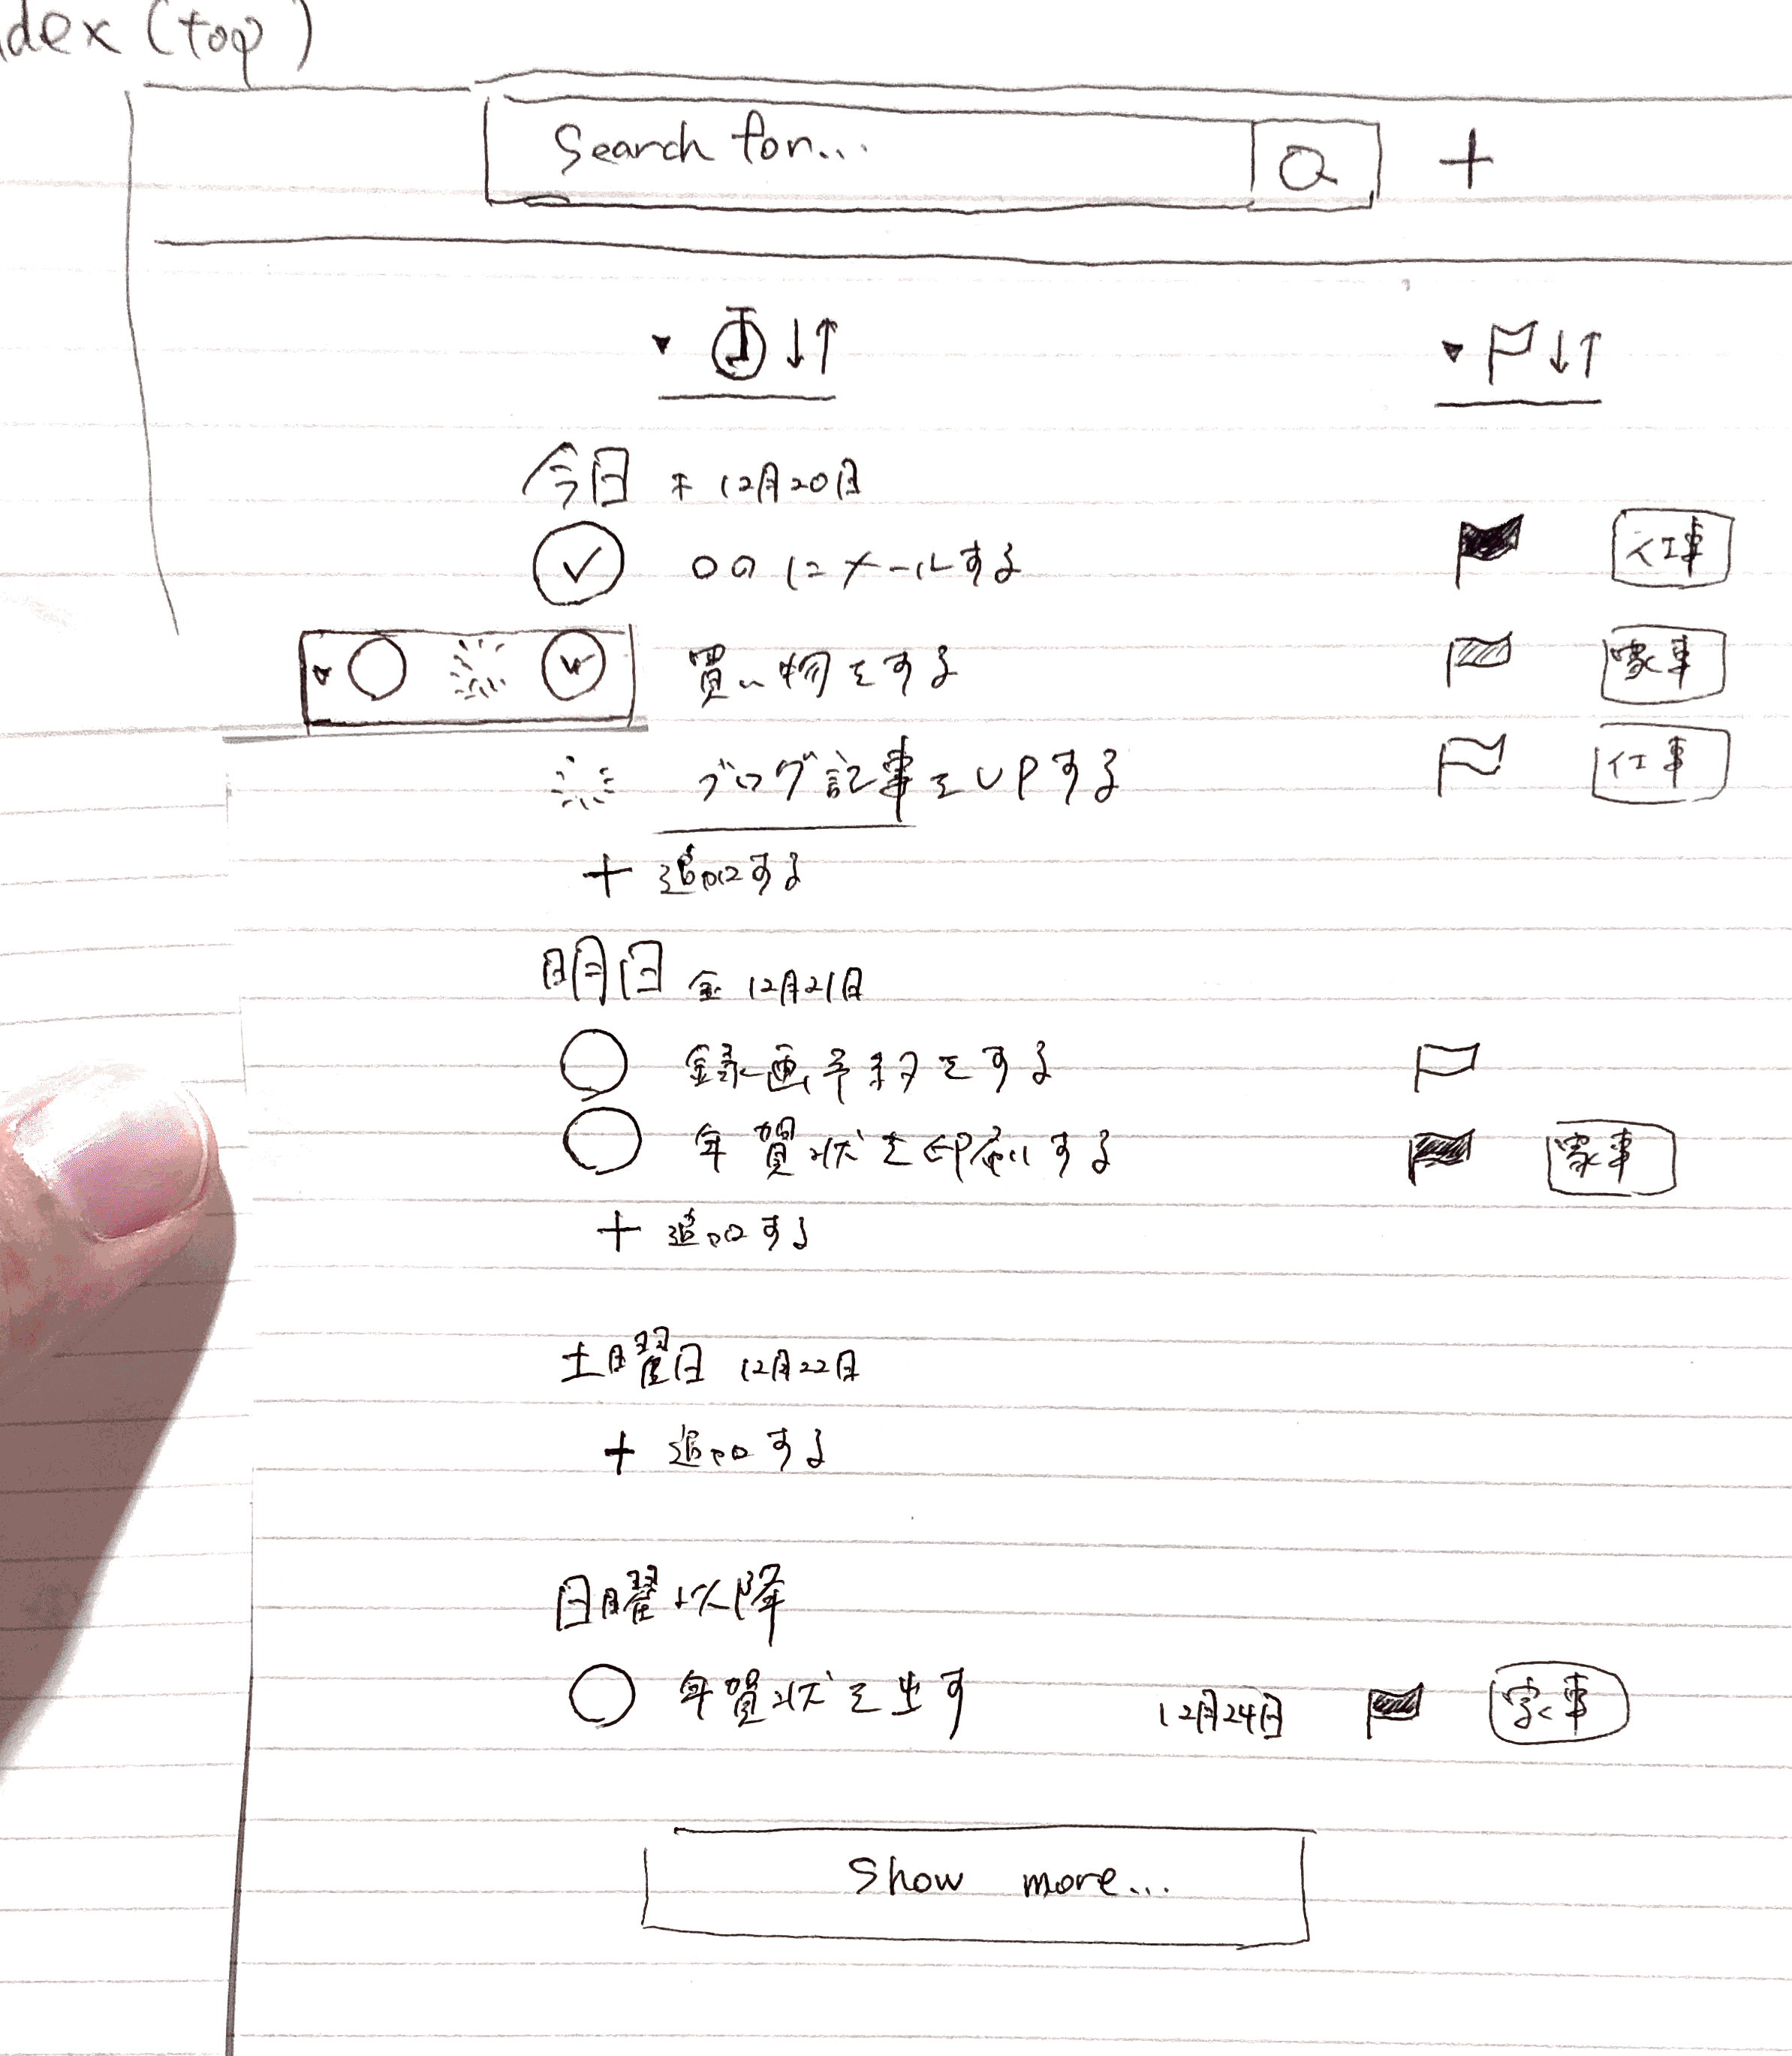 dex (top)
Search for...
+
↓↑ ↓↑
今日 木 12月20日
○○にメールする 仕事
買い物をする 家事
ブログ記事をUPする 仕事
+ 追加する
明日 金 12月21日
録画予約をする
年賀状を印刷する 家事
+ 追加する
土曜日 12月22日
+ 追加する
日曜以降
年賀状を出す 12月24日 家事
Show more...